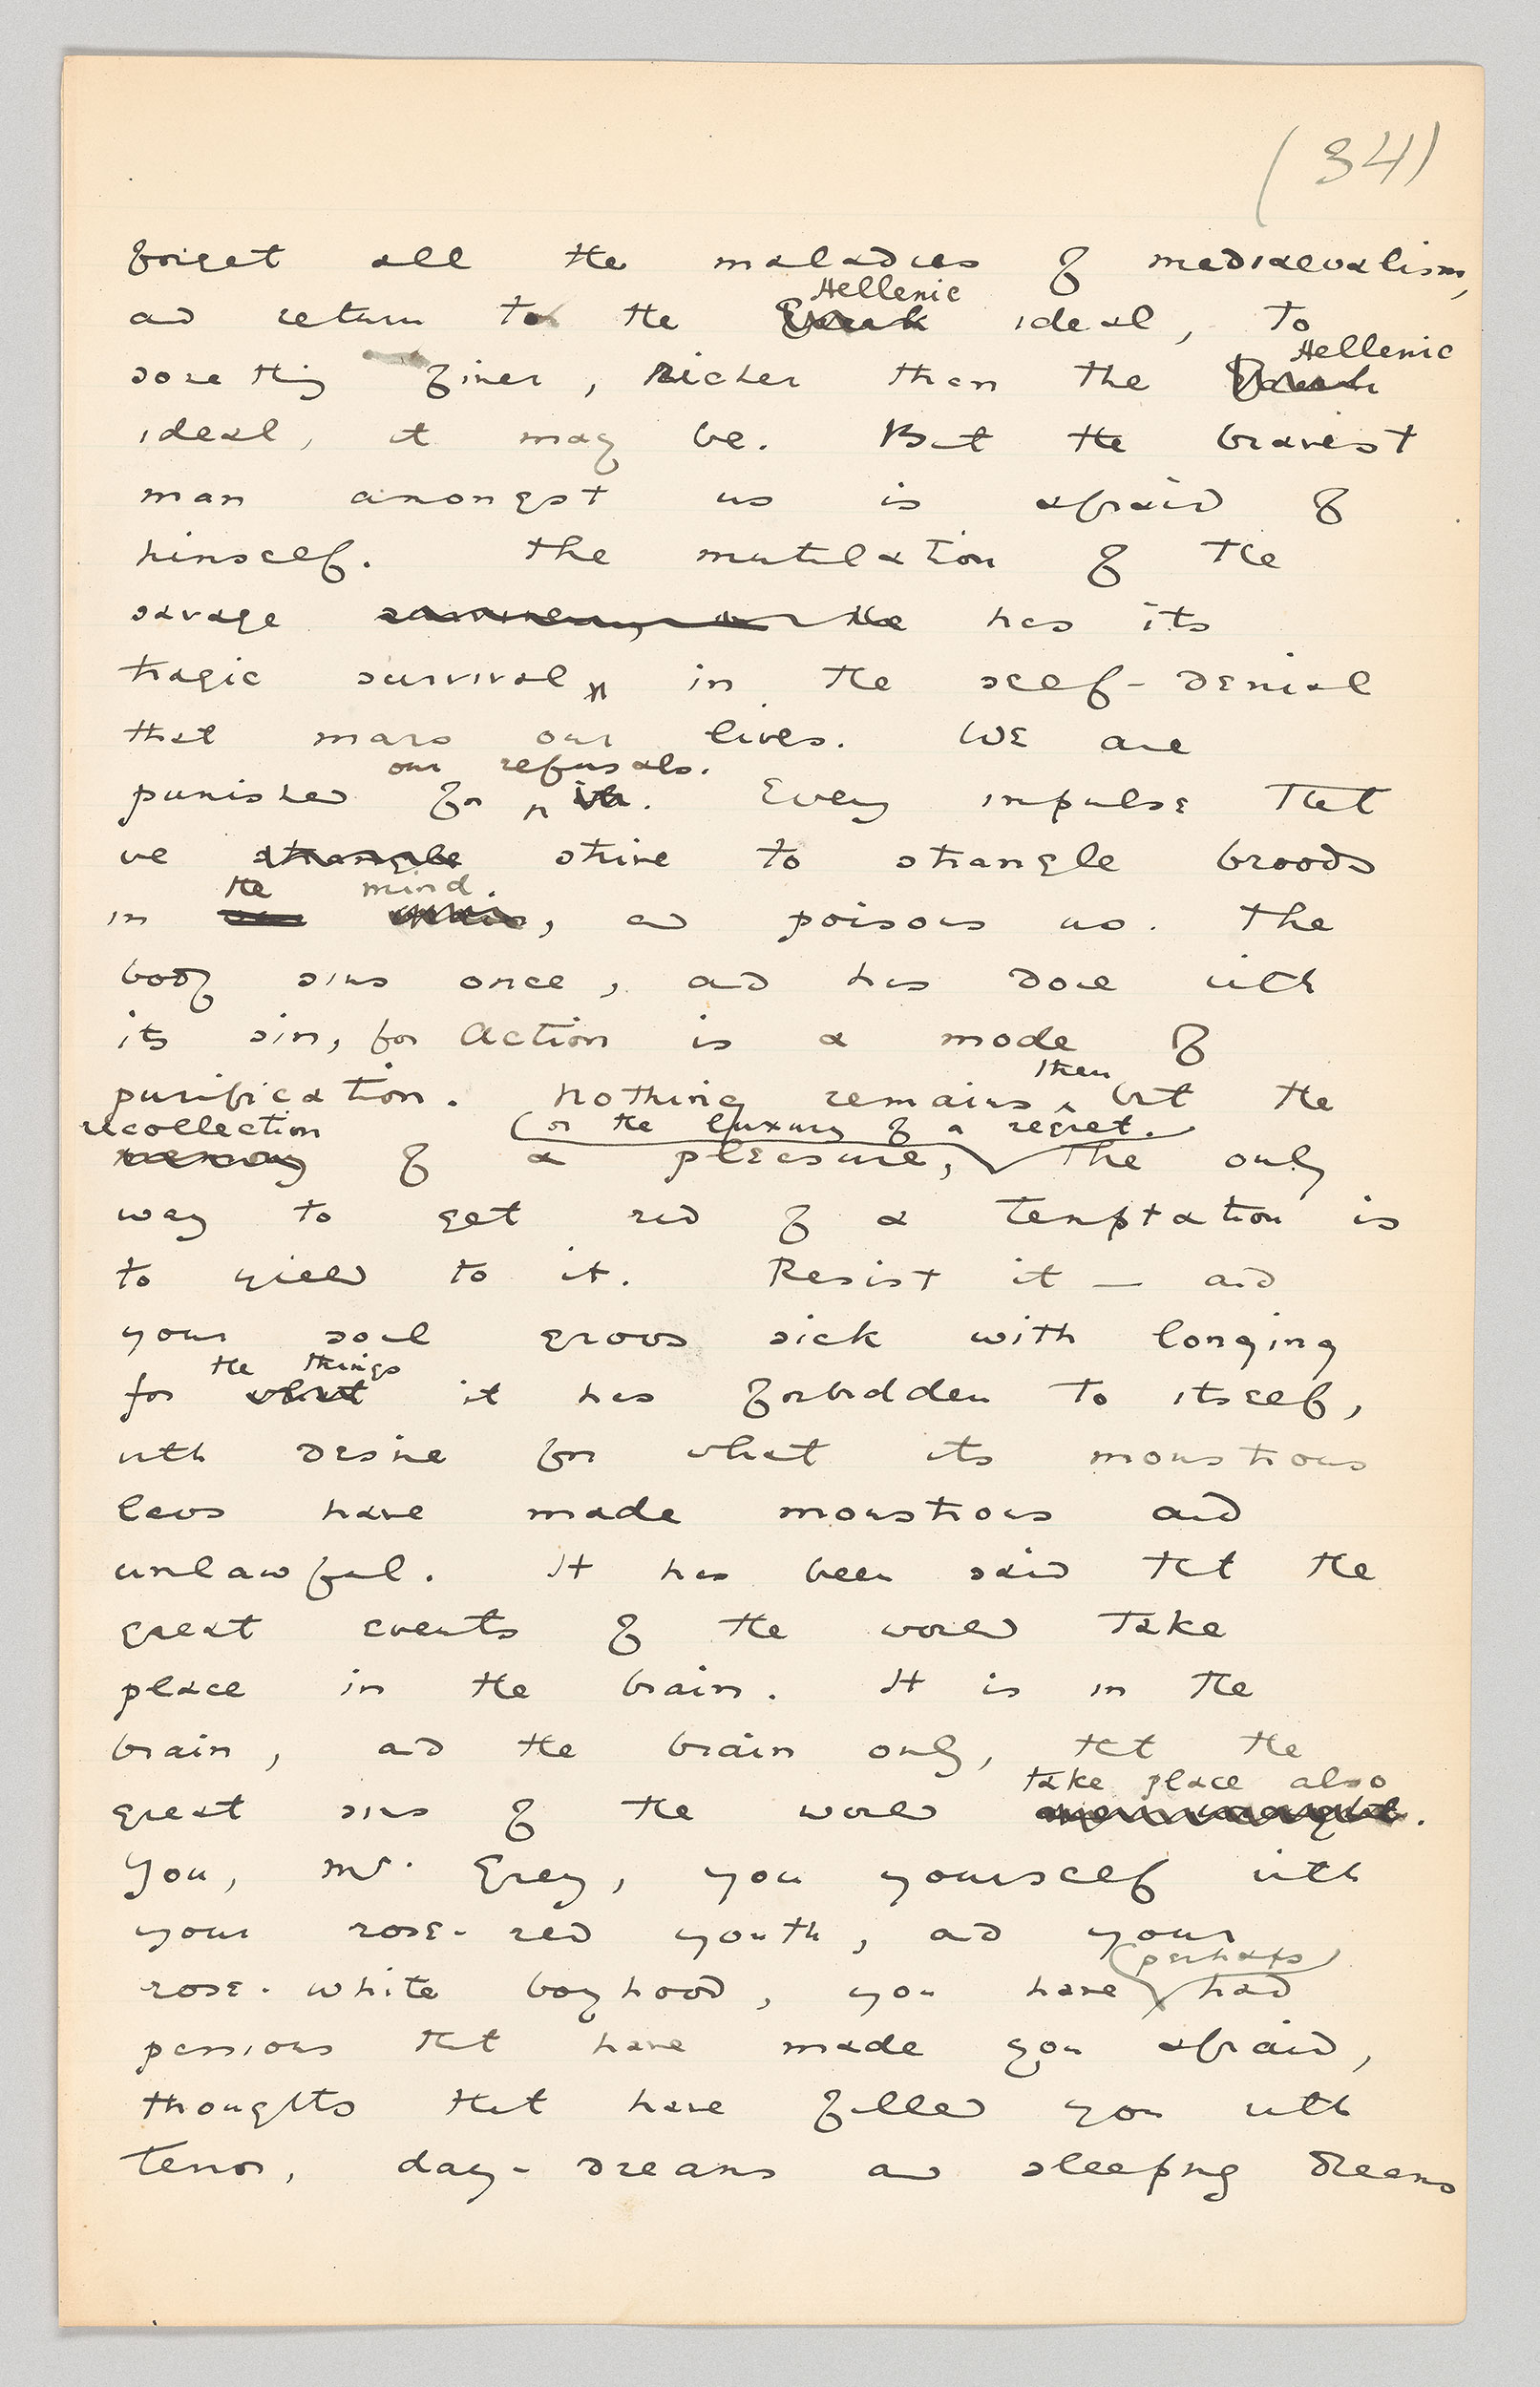 (34)
forget all the maladies of mediaevalism,
Hellenic
and return to the Greek ideal, to
Hellenic
something finer, Richer than the Greek
ideal, it may be. But the bravest
man amongst us is afraid of
himself. The mutilation of the
savage has its
tragic survival in the self-denial
that mars our lives. We are
our refusals.
punished for it. Every impulse that
we strangle strive to strangle broods
the mind.
in, and poisons us. The
body sins once, and has done with
its sin, for Action is a mode of
then
purification. Nothing remains but the
recollection (or the luxury of a regret.
memory of a pleasure, The only
way to get rid of a temptation is
to yield to it. Resist it — and
your soul grows sick with longing
the things
for what it has forbidden to itself,
with desire for what its monstrous
laws have made monstrous and
unlawful. It has been said that the
great events of the world take
place in the brain. It is in the
brain, and the brain only, that the
take place also
great sins of the world.
You, Mr. Grey, you yourself with
your rose-red youth, and your
(perhaps)
rose-white boyhood, you have had
passions that have made you afraid,
thoughts that have filled you with
terror, day-dreams and sleeping dreams